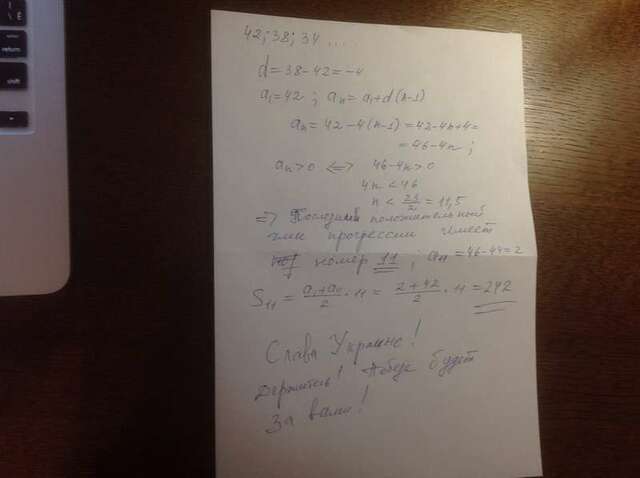 42; 38; 34 ....
d = 38 - 42 = -4
a₁ = 42 ; aₙ = a₁ + d(n-1)
aₙ = 42 - 4(n-1) = 42 - 4n + 4 =
= 46 - 4n ;
aₙ > 0 <=> 46 - 4n > 0
4n < 46
n < 23/2 = 11,5
=> Последний положительный
член прогрессии имеет
номер 11 ; a₁₁ = 46 - 44 = 2
S₁₁ = (a₁ + a₁₁)/2 · 11 = (2 + 42)/2 · 11 = 242
Слава Украине!
Держитесь! Победа будет
За вами!
return
shift